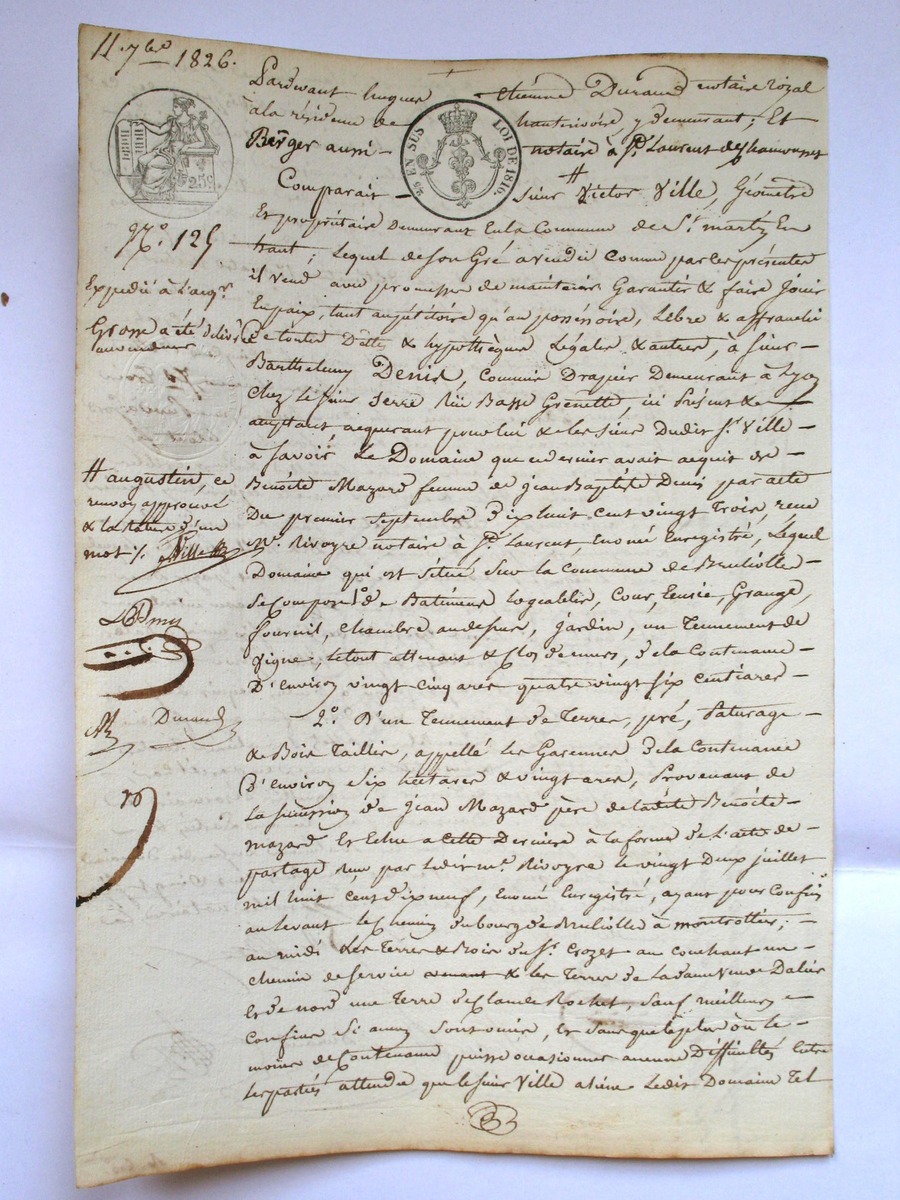 11. 7bre 1826.
Pardevant hugues Etienne Durand notaire royal
à la résidence de hauterivoire y demeurant; Et
Berger aussi notaire à St Laurent de chamousset
25 EN SUS LOI DE 1816.
25c
Comparait Sieur Victor Ville, Géomètre
No. 125
Et propriétaire demeurant En la Commune de St martin En
haut; Lequel de son Gré a vendu comme par ces présentes
Expedié à l'acqr
il vend avec promesse de maintenir Garantir & faire Jouir
En paix, tant au pétitoire qu'au possessoire, Libre & affranchi
Grosse a été délivrée
au vendeur
De toutes Dettes & hypothèques Légales & autres, à Sieur
Barthelemy Denis, Commis Drapier Demeurant à Lyon
chez le Sieur Serre Rue Basse Grenette, ici Présent &
acceptant acquerant pour lui & les siens Dudit Sr. Ville
à Savoir Le Domaine que ce dernier avait acquis de
Benoite Mazard femme de jean Baptiste Denis par acte
# augustin, ce
renvoi approuvé
& la rature d'un
mot /. Ville
Du premier Septembre Dix huit cent vingt Trois, reçu
Me. Rivoyre notaire à St. Laurent, Enoncé Enregistré, Lequel
Domaine qui est situé Sur la Commune de Brulliolles
Se Compose 1o. de Batimens logeables, Cour, Ecurie, Grange,
BDenis
fournil, chambre au dessus, jardin, un Tennement de
Vigne, le tout attenant & Clos de murs, de la Contenance
D'environ vingt cinq ares quatre vingt six centiares
Durand
2o. D'un Tennement de Terres, pré, Paturage
& Bois Taillis, appellé les Garennes de la Contenance
D'environ Six hectares & vingt ares, Provenant de
La succession de jean Mazard père de ladite Benoite
mazard Et Echu a cette Derniere à la forme de l'acte de
partage reçu par ledit me. Rivoyre le vingt Deux juillet
mil huit cent dix neuf, Enoncé Enregistré, ayant pour Confins
au levant le Chemin du bourg de Brulliolles à montrottier;
au midi Les Terres & Bois du Sr. Crozet au couchant un
chemin de service & les Terres de la dame Veuve
Et de nord une Terre de Claude Rochet, Sauf meilleurs
Confins Si aucuns Sont omis, Et Sans que le plus ou le
moins de Contenance puisse occasionner aucune Difficultés Entre
Les parties attendu que le Sieur Ville a ledit Domaine Tel